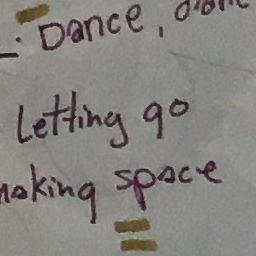 Dance,
Letting go
making space